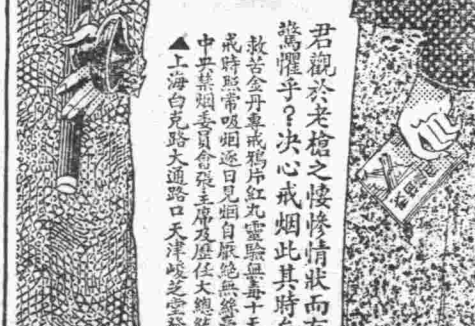 君觀於老槍之悽慘情狀而
驚懼乎？决心戒烟此其時
救苦金丹專戒鴉片紅丸靈驗無毒十天
戒時照常吸烟逐日見烟自厭絕無絲毫
中央禁烟委員會張主席及歷任大總統
▲上海白克路大通路口天津嵫芝堂發